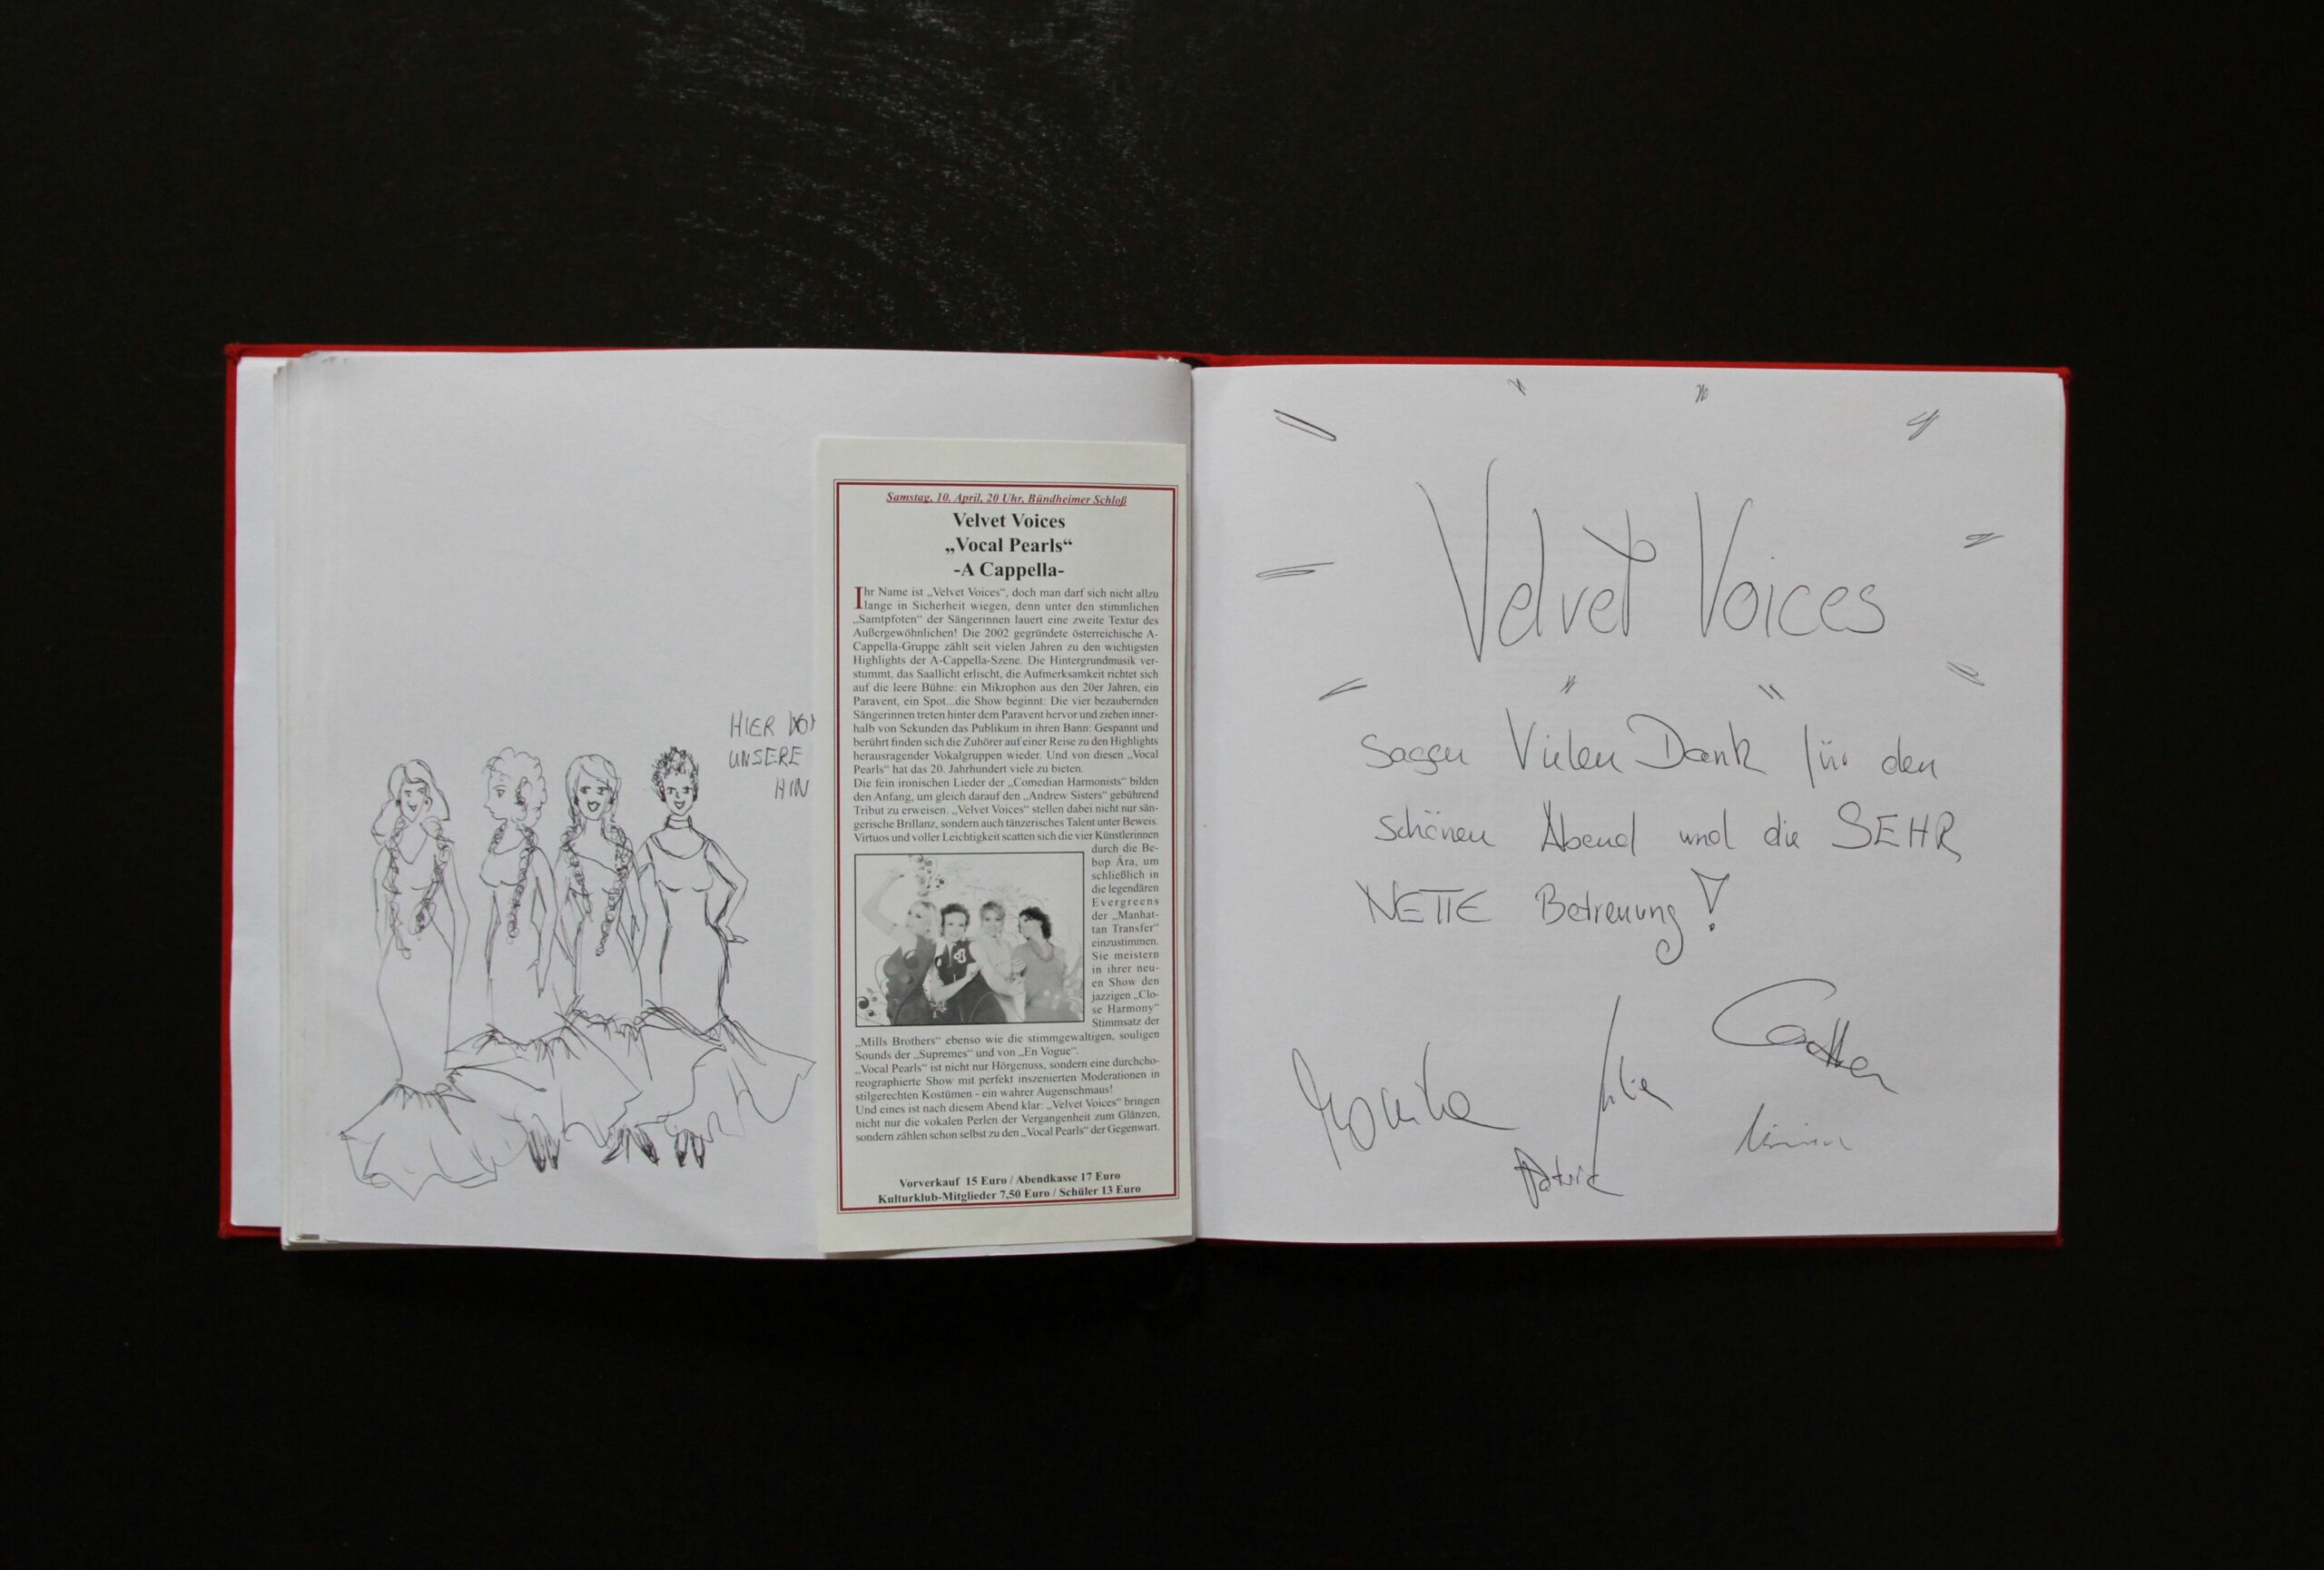 HIER
UNSERE
HIN
Samstag, 10. April, 20 Uhr, Bündheimer Schloß
Velvet Voices
„Vocal Pearls“
-A Cappella-
Ihr Name ist „Velvet Voices“, doch man darf sich nicht allzu
lange in Sicherheit wiegen, denn unter den stimmlichen
„Samtpfoten“ der Sängerinnen lauert eine zweite Textur des
Außergewöhnlichen! Die 2002 gegründete österreichische A-
Cappella-Gruppe zählt seit vielen Jahren zu den wichtigsten
Highlights der A-Cappella-Szene. Die Hintergrundmusik ver-
stummt, das Saallicht erlischt, die Aufmerksamkeit richtet sich
auf die leere Bühne: ein Mikrophon aus den 20er Jahren, ein
Paravent, ein Spot...die Show beginnt: Die vier bezaubernden
Sängerinnen treten hinter dem Paravent hervor und ziehen inner-
halb von Sekunden das Publikum in ihren Bann: Gespannt und
berührt finden sich die Zuhörer auf einer Reise zu den Highlights
herausragender Vokalgruppen wieder. Und von diesen „Vocal
Pearls“ hat das 20. Jahrhundert viele zu bieten.
Die fein ironischen Lieder der „Comedian Harmonists“ bilden
den Anfang, um gleich darauf den „Andrew Sisters“ gebührend
Tribut zu erweisen. „Velvet Voices“ stellen dabei nicht nur sän-
gerische Brillanz, sondern auch tänzerisches Talent unter Beweis.
Virtuos und voller Leichtigkeit scatten sich die vier Künstlerinnen
durch die Be-
bop Ära, um
schließlich in
die legendären
Evergreens
der „Manhat-
tan Transfer“
einzustimmen.
Sie meistern
in ihrer neu-
en Show den
jazzigen „Clo-
se Harmony“
Stimmsatz der
„Mills Brothers“ ebenso wie die stimmgewaltigen, souligen
Sounds der „Supremes“ und von „En Vogue“.
„Vocal Pearls“ ist nicht nur Hörgenuss, sondern eine durchcho-
reographierte Show mit perfekt inszenierten Moderationen in
stilgerechten Kostümen - ein wahrer Augenschmaus!
Und eines ist nach diesem Abend klar: „Velvet Voices“ bringen
nicht nur die vokalen Perlen der Vergangenheit zum Glänzen,
sondern zählen schon selbst zu den „Vocal Pearls“ der Gegenwart.
Vorverkauf 15 Euro / Abendkasse 17 Euro
Kulturklub-Mitglieder 7,50 Euro / Schüler 13 Euro
Velvet Voices
sagen Vielen Dank für den
schönen Abend und die SEHR
NETTE Betreuung!
Monika
Julia
Patrick